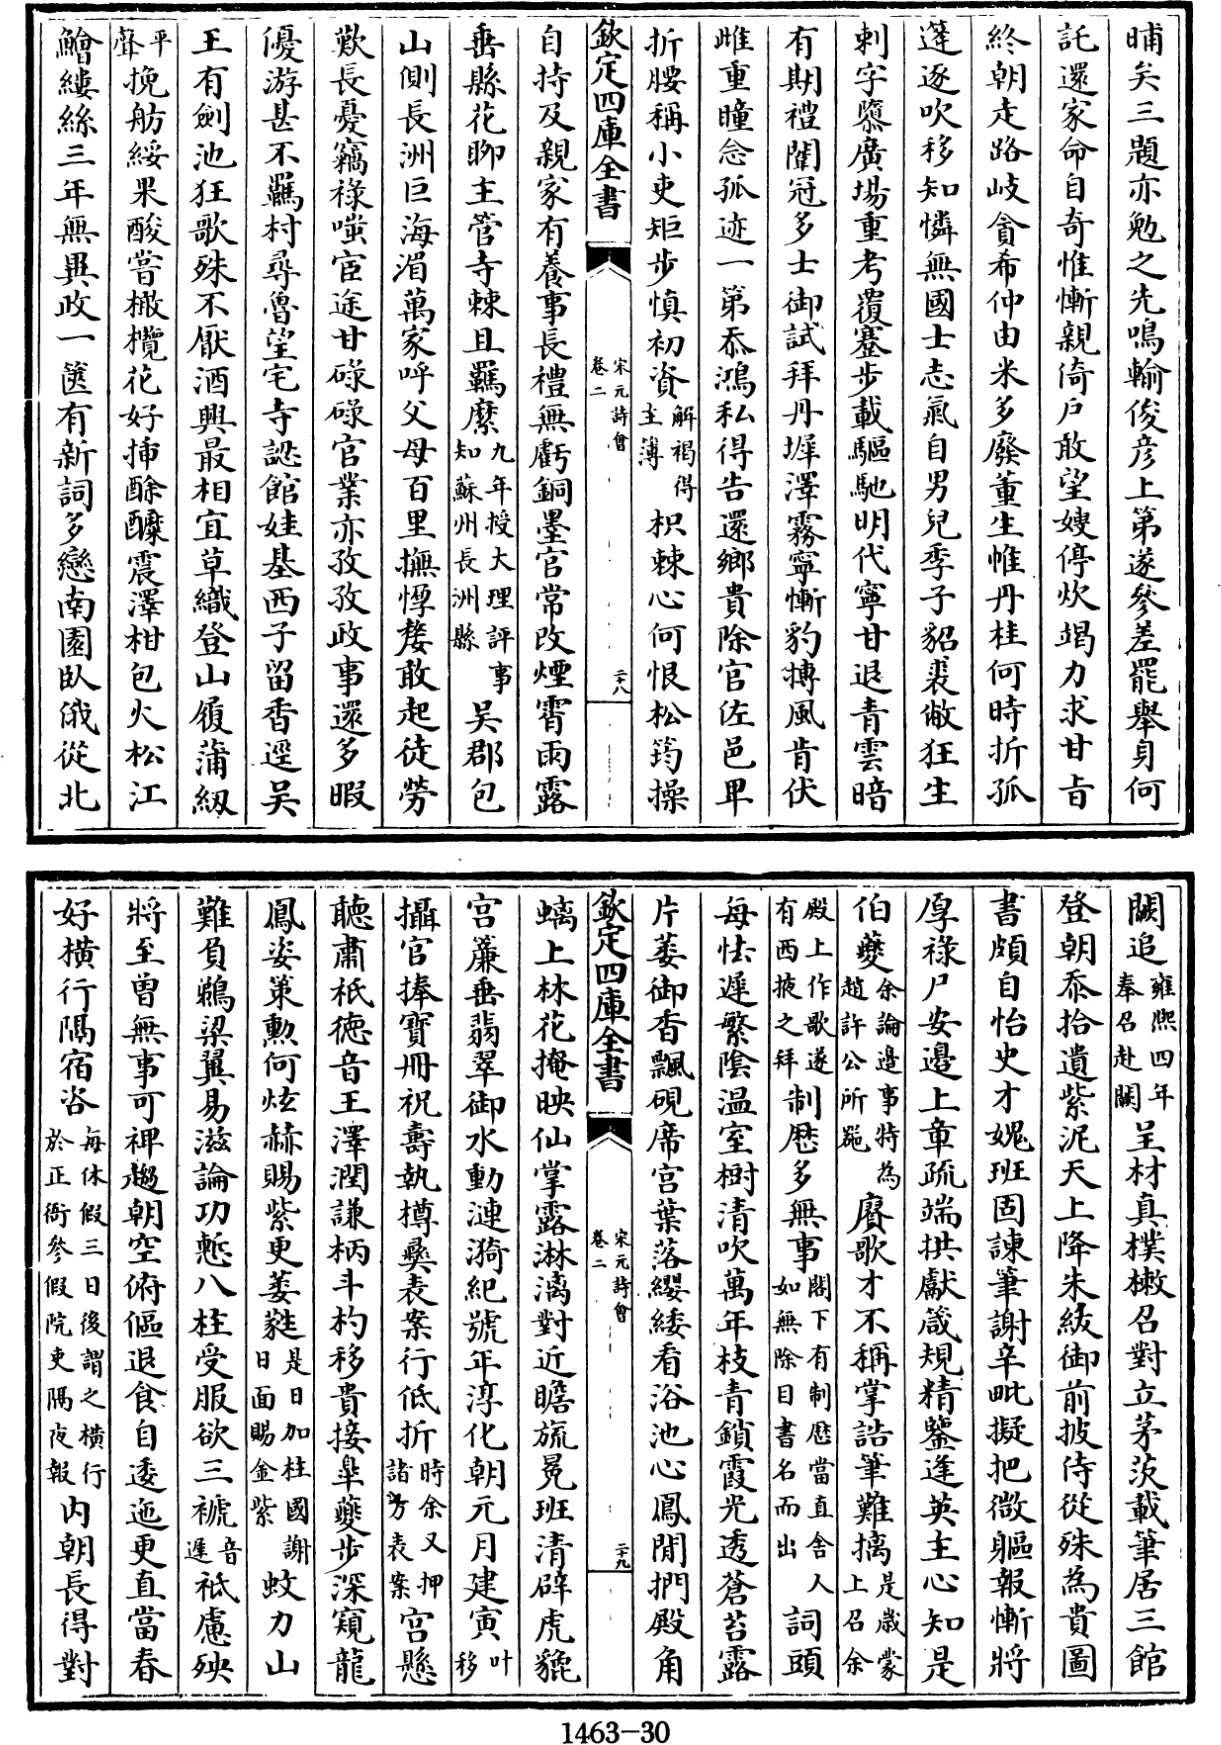 晡矣三題亦勉之先鳴輸俊彥上第遂參差罷舉身何
託還家命自奇惟慚親倚戶敢望嫂停炊竭力求甘旨
終朝走路岐貪希仲由米多廢董生帷丹桂何時折孤
蓬逐吹移知憐無國士志氣自男兒季子貂裘敝狂生
刺字隳廣場重考覆蹇步載驅馳明代寧甘退青雲暗
有期禮闈冠多士御試拜丹墀澤霧寧慚豹摶風肯伏
雌重瞳念孤迹一第忝鴻私得告還鄉貴除官佐邑卑
折腰稱小吏矩步慎初資解褐得主簿枳棘心何恨松筠操
欽定四庫全書
宋元詩會
卷二
二十八
自持及親家有養事長禮無虧銅墨官常改煙霄雨露
垂縣花聊主管寺棘且羈縻九年授大理評事知蘇州長洲縣吳郡包
山側長洲巨海湄萬家呼父母百里撫惸嫠敢起徒勞
歎長憂竊祿嗤宦途甘碌碌官業亦孜孜政事還多暇
優游甚不羈村尋魯望宅寺認館娃基西子留香逕吳
王有劍池狂歌殊不厭酒興最相宜草織登山履蒲紉
平聲挽舫綏果酸嘗橄欖花好插酴醾震澤柑包火松江
鱠縷絲三年無異政一篋有新詞多戀南園臥俄從北
闕追雍熙四年奉召赴闕呈材真樸樕召對立茅茨載筆居三館
登朝忝拾遺紫泥天上降朱紱御前披侍從殊為貴圖
書頗自怡史才媿班固諫筆謝辛毗擬把微軀報慚將
厚祿尸安邊上章疏端拱獻箴規精鑒逢英主心知是
伯夔余論邊事特為趙許公所毀賡歌才不稱掌誥筆難摛是歲蒙上召余
殿上作歌遂有西掖之拜制歷多無事閣下有制歷當直舍人如無除目書名而出詞頭
每怯遲繁陰溫室樹清吹萬年枝青鎖霞光透蒼苔露
片萎御香飄硯席宮葉落纓緌看浴池心鳳閒捫殿角
欽定四庫全書
宋元詩會
卷二
二十九
螭上林花掩映仙掌露淋漓對近瞻旒冕班清辟虎貔
宮簾垂翡翠御水動漣漪紀號年淳化朝元月建寅叶移
攝官捧寶冊祝壽執樽彝表案行低折時余又押諸方表案宮懸
聽肅祇德音王澤潤謙柄斗杓移貴接皋夔步深窺龍
鳳姿策勳何炫赫賜紫更萎蕤是日加柱國謝日面賜金紫蚊力山
難負鵜梁翼易滋論功慙八柱受服欲三褫音遲祗慮殃
將至曾無事可裨趨朝空俯傴退食自逶迤更直當春
好橫行隅宿咨每休假三日後謂之橫行於正衙參假院吏隅夜報內朝長得對
1463-30